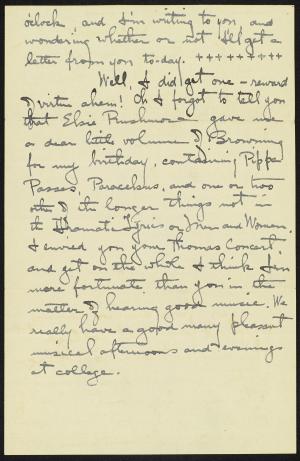 o'clock, and I'm writing to you and
wondering whether or not I'll get a
letter from you to-day. + + + + + + + +
Well, I did get one - reward
of virtue ahem! Oh I forgot to tell you
that Elsie Rushmore gave me
a dear little volume of Browning
for my birthday, containing Pippa
Passes, Paracelsus, and one or two
other of the longer things not in
the Dramatic Lyrics or Men and Women.
I envied you your Thomas Concert,
and yet on the whole I think I'm
more fortunate than you in the
matter of hearing good music. We
really have a good many pleasant
musical afternoons and evenings
at college.